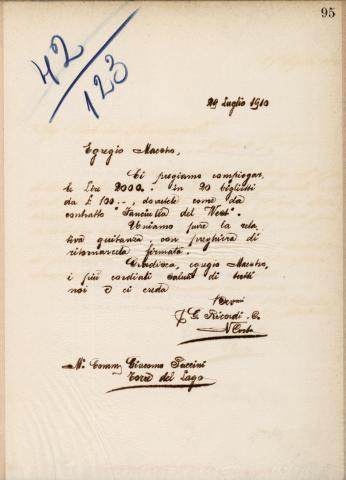 95
42
123
29 Luglio 1910
Egregio Maestro,
Ci pregiamo compiegar
le Lire 2000.- in 20 biglietti
da £ 100.-, dovutele come da
contratto "Fanciulla del West".
Uniamo pure la rela
tiva quitanza con preghiera di
ritornarcela firmata.
Gradisca, egregio Maestro,
i più cordiali saluti di tutti
noi e ci creda
G. Ricordi & C.
Costa
Giacomo Puccini
Torre del Lago